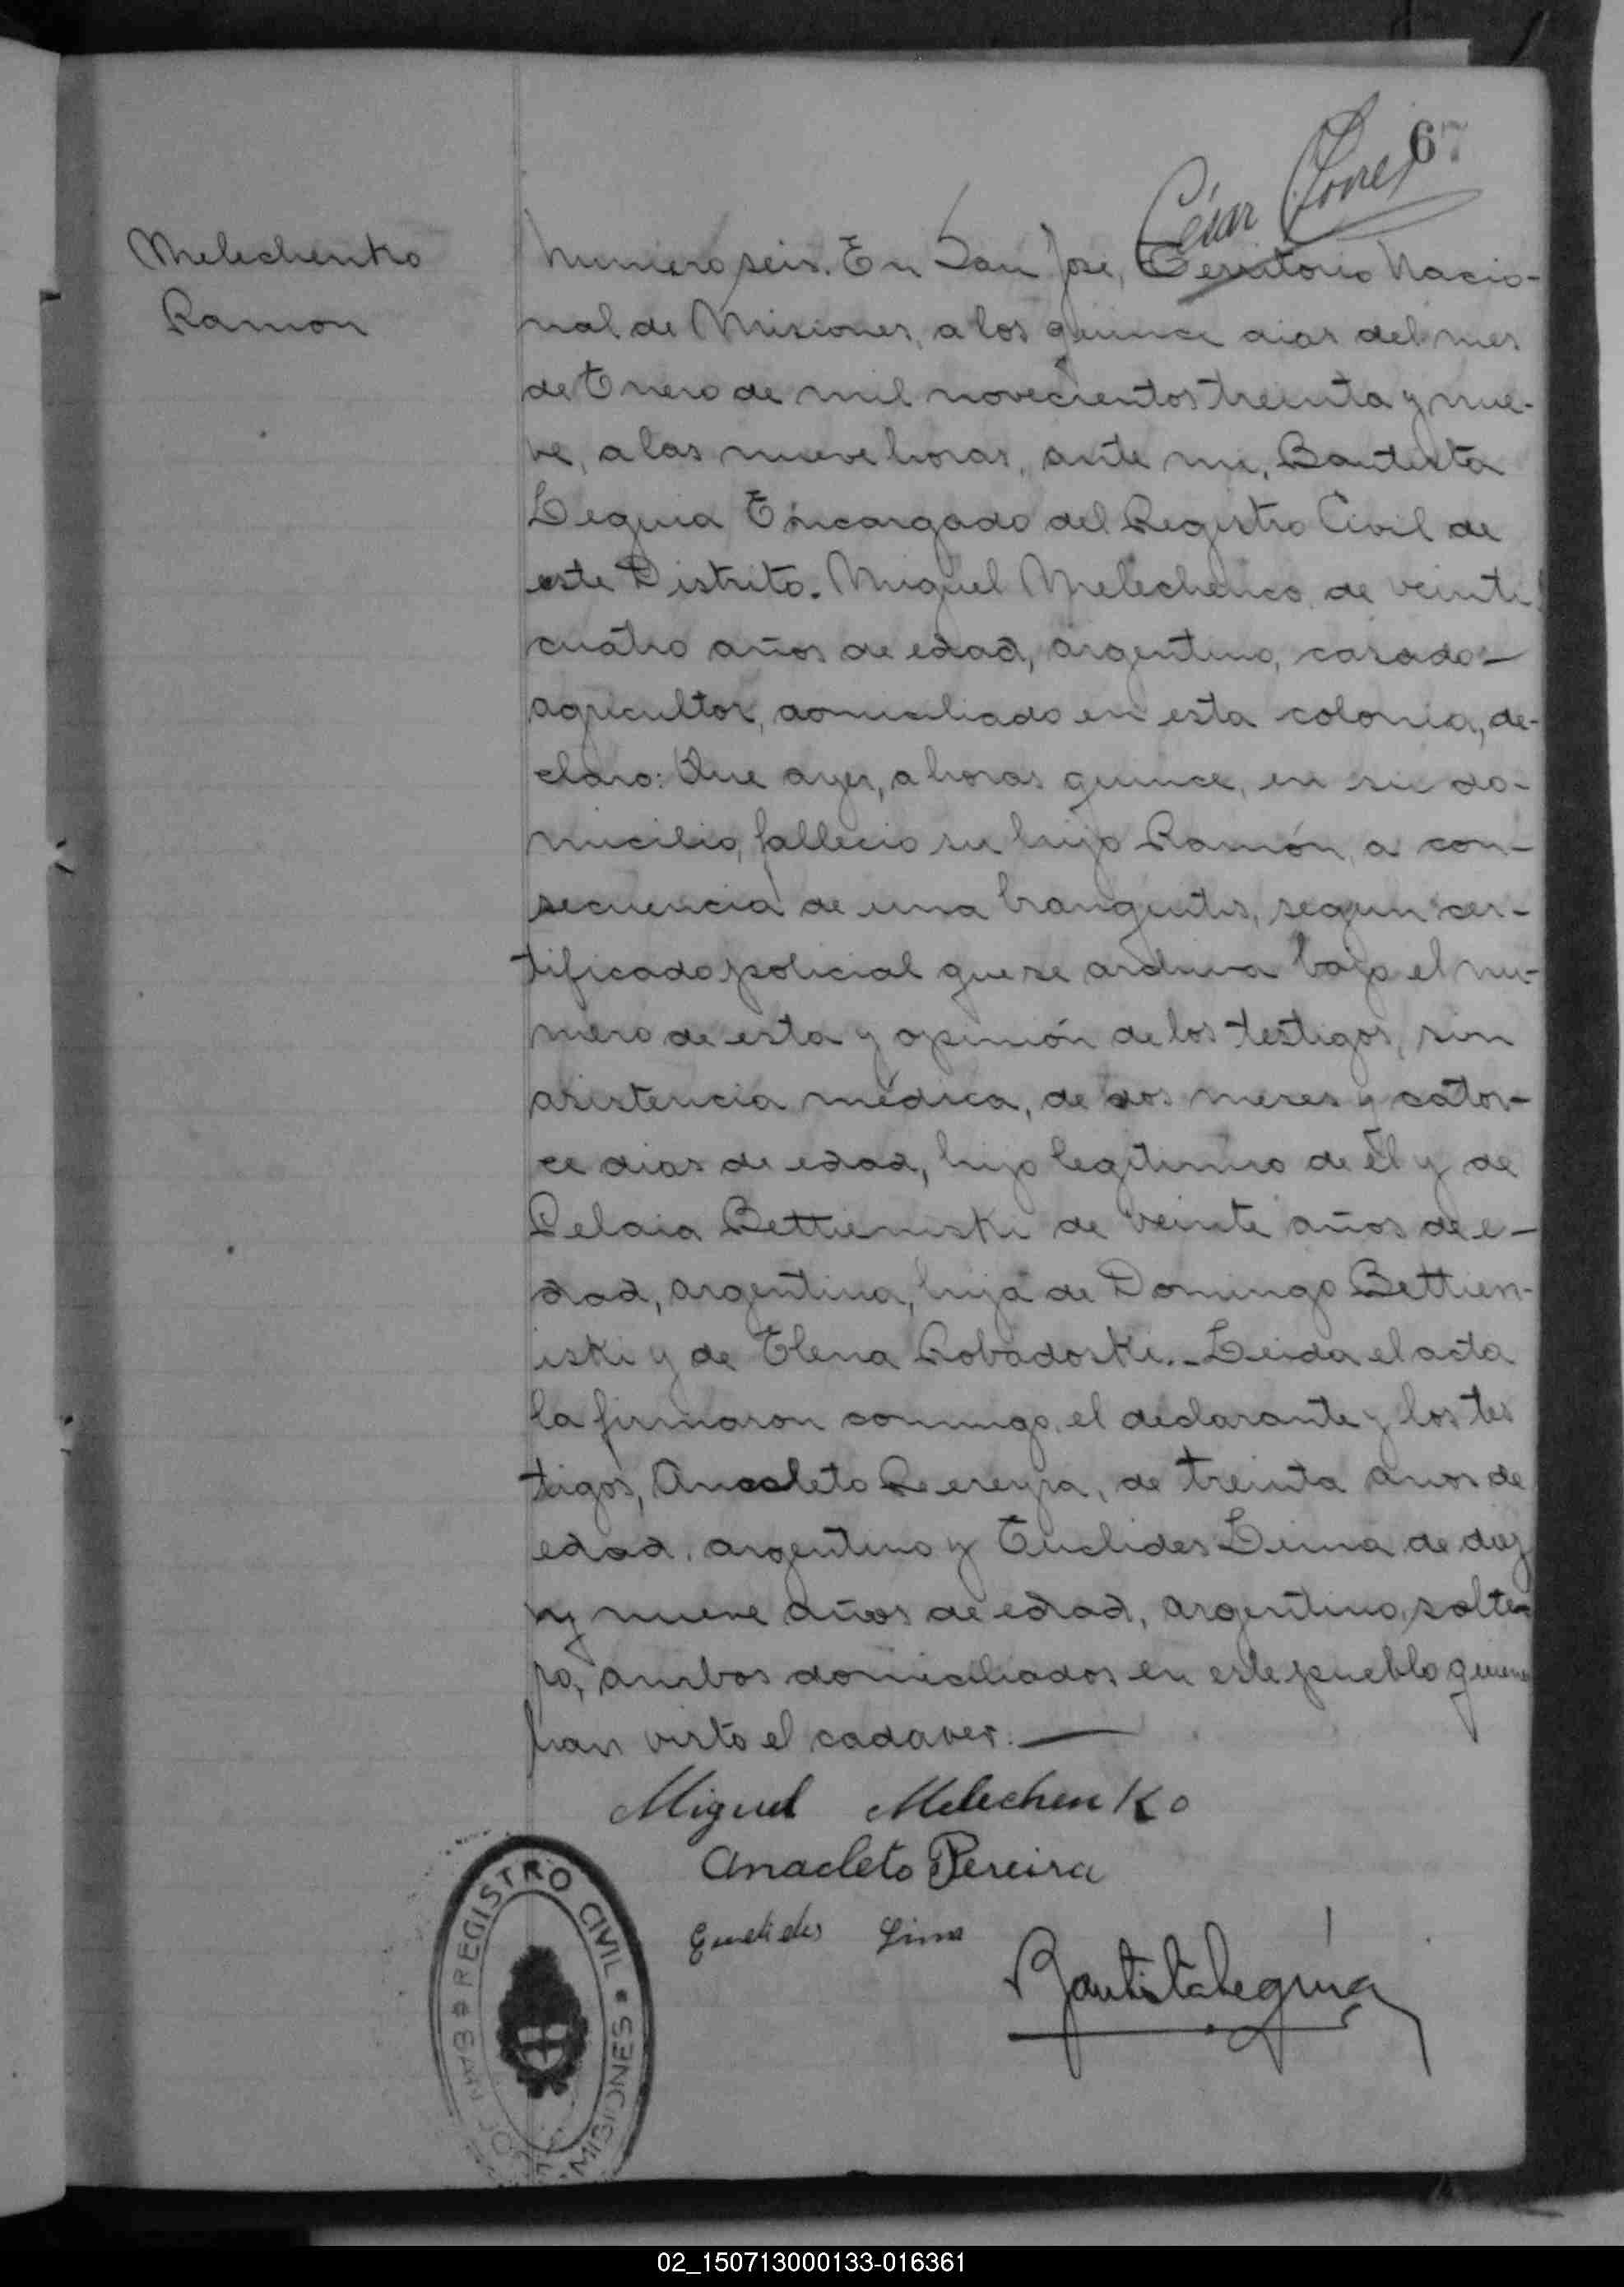 67
César
Melechenko
Ramon
Numero seis. En San José, Territorio Nacio-
nal de Misiones, a los quince dias del mes
de Enero de mil novecientos treinta y nue-
ve, a las nueve horas, ante mi, Bautista
Leguia Encargado del Registro Civil de
este Distrito. Miguel Melechenco, de veinti
cuatro años de edad, argentino, casado-
agricultor, domiciliado en esta colonia, de-
claro: Que ayer, a horas quince, en su do-
micilio, fallecio su hijo Ramón, a con-
secuencia de una branquitis, segun cer-
tificado policial que se archiva bajo el nu-
mero de esta y opinión de los testigos, sin
asistencia médica, de dos meses y cator-
ce dias de edad, hijo legitimo de él y de
Pelaia Bettieniski de veinte años de e-
dad, argentina, hija de Domingo Bettien-
iski y de Elena Robadoski. - Leida el acta
la firmaron conmigo, el declarante y los tes
tigos, Anacleto Pereyra, de treinta años de
edad, argentino y Euclides Lima de diez
y nueve años de edad, argentino, solte-
ro, ambos domiciliados en este pueblo quienes
han visto el cadaver. —
Miguel Melechenko
Anacleto Pereira
Euclides Lima
Bautista Leguia
REGISTRO CIVIL
SAN JOSE MISIONES
02_150713000133-016361